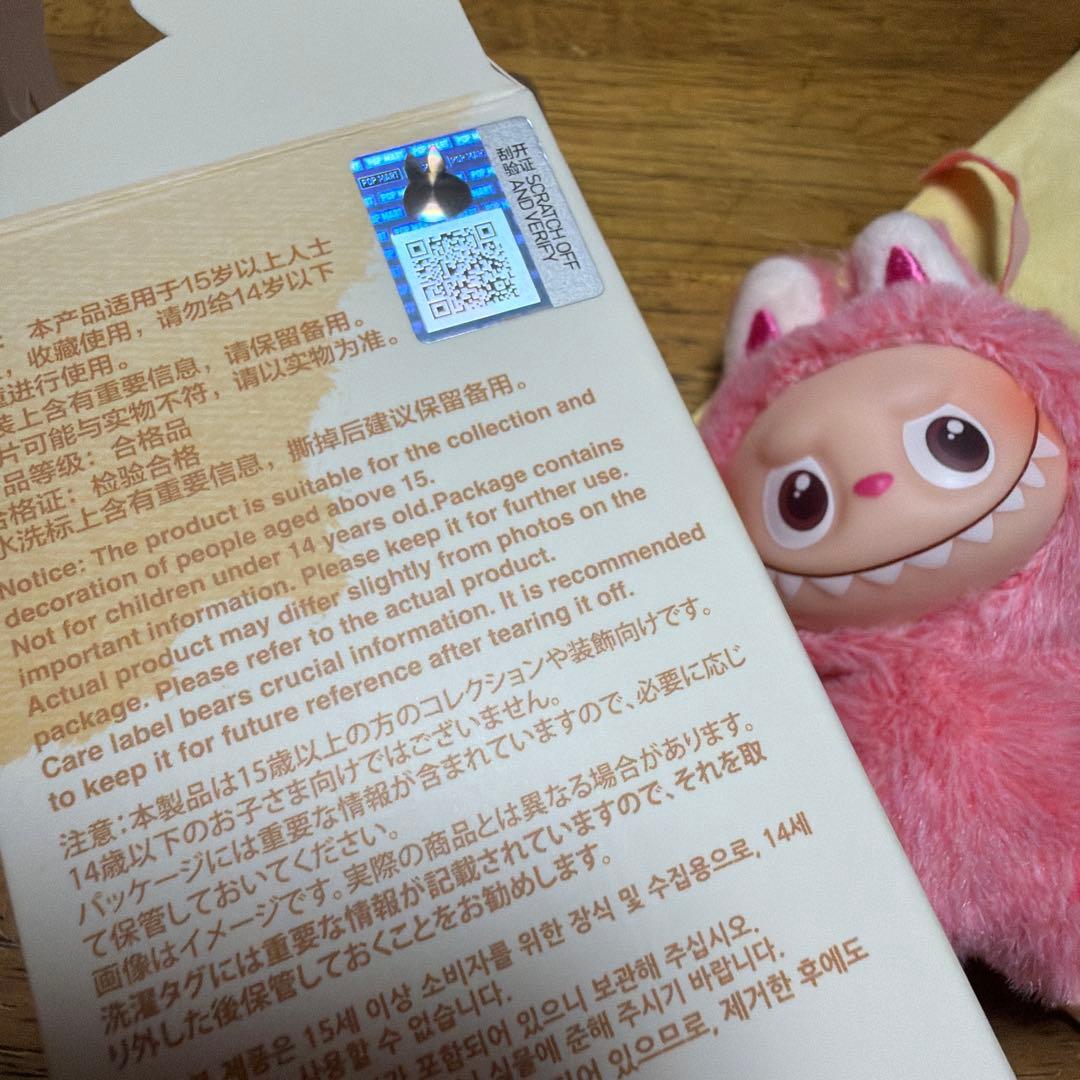 POP MART
刮开
验证
SCRATCH OFF
AND VERIFY
本产品适用于15岁以上人士
收藏使用，请勿给14岁以下
进行使用。
装上含有重要信息，请保留备用。
片可能与实物不符，请以实物为准。
品等级：合格品
合格证：检验合格
水洗标上含有重要信息，撕掉后建议保留备用。
Notice: The product is suitable for the collection and
decoration of people aged above 15.
Not for children under 14 years old.Package contains
important information. Please keep it for further use.
Actual product may differ slightly from photos on the
package. Please refer to the actual product.
Care label bears crucial information. It is recommended
to keep it for future reference after tearing it off.
注意：本製品は15歳以上の方のコレクションや装飾向けです。
14歳以下のお子さま向けではございません。
パッケージには重要な情報が含まれていますので、必要に応じ
て保管しておいてください。
画像はイメージです。実際の商品とは異なる場合があります。
洗濯タグには重要な情報が記載されていますので、それを取
り外した後保管しておくことをお勧めします。
제품은 15세 이상 소비자를 위한 장식 및 수집용으로, 14세
사용할 수 없습니다.
가 포함되어 있으니 보관해 주십시오.
실물에 준해 주시기 바랍니다.
되어 있으므로, 제거한 후에도